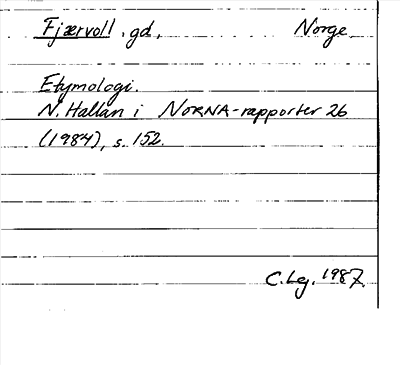 Fjærvoll, gd. Norge
Etymologi.
N. Hallan i NORNA-rapporter 26
(1984), s. 152.
C. Lg. 1987.